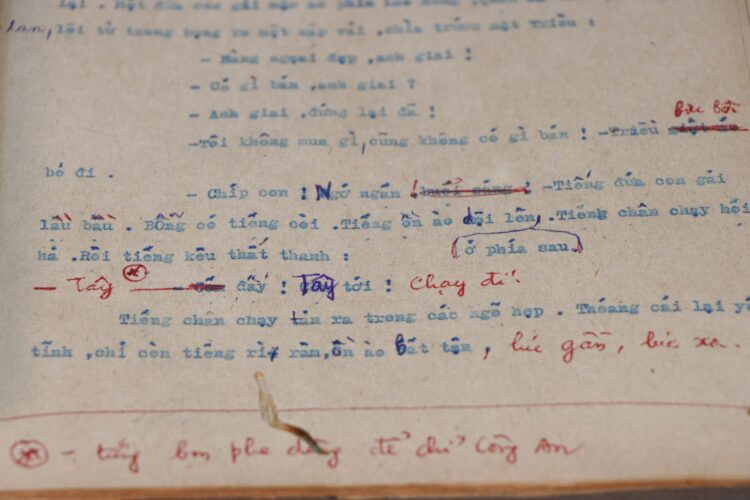 lại . Một đứa con gái mặc áo phía
lan, lôi từ trong bụng ra một xấp vải ,chìa trước mặt Triều :
- Hàng ngoại đẹp ,anh giai !
- Có gì bán ,anh giai ?
- Anh giai ,đứng lại đã !
-Tôi không mua gì,cũng không có gì bán ! -Triều bực bội
bỏ đi .
- Chíp con ! Ngớ ngẩn ! buổi sáng ! -Tiếng đứa con gái
lầu bầu . Bỗng có tiếng còi .Tiếng ồn ào dội lên, .Tiếng chân chạy hối
hả .Rồi tiếng kêu thất thanh : ở phía sau.
- Tây đấy ! Tây tới ! Chạy đi!
Tiếng chân chạy tản ra trong các ngõ hẹp . Thoáng cái lại yên
tĩnh ,chỉ còn tiếng rì rầm,ồn ào bất tận , lúc gần, lúc xa.
- tiếng bọn phe dùng để chỉ Công An